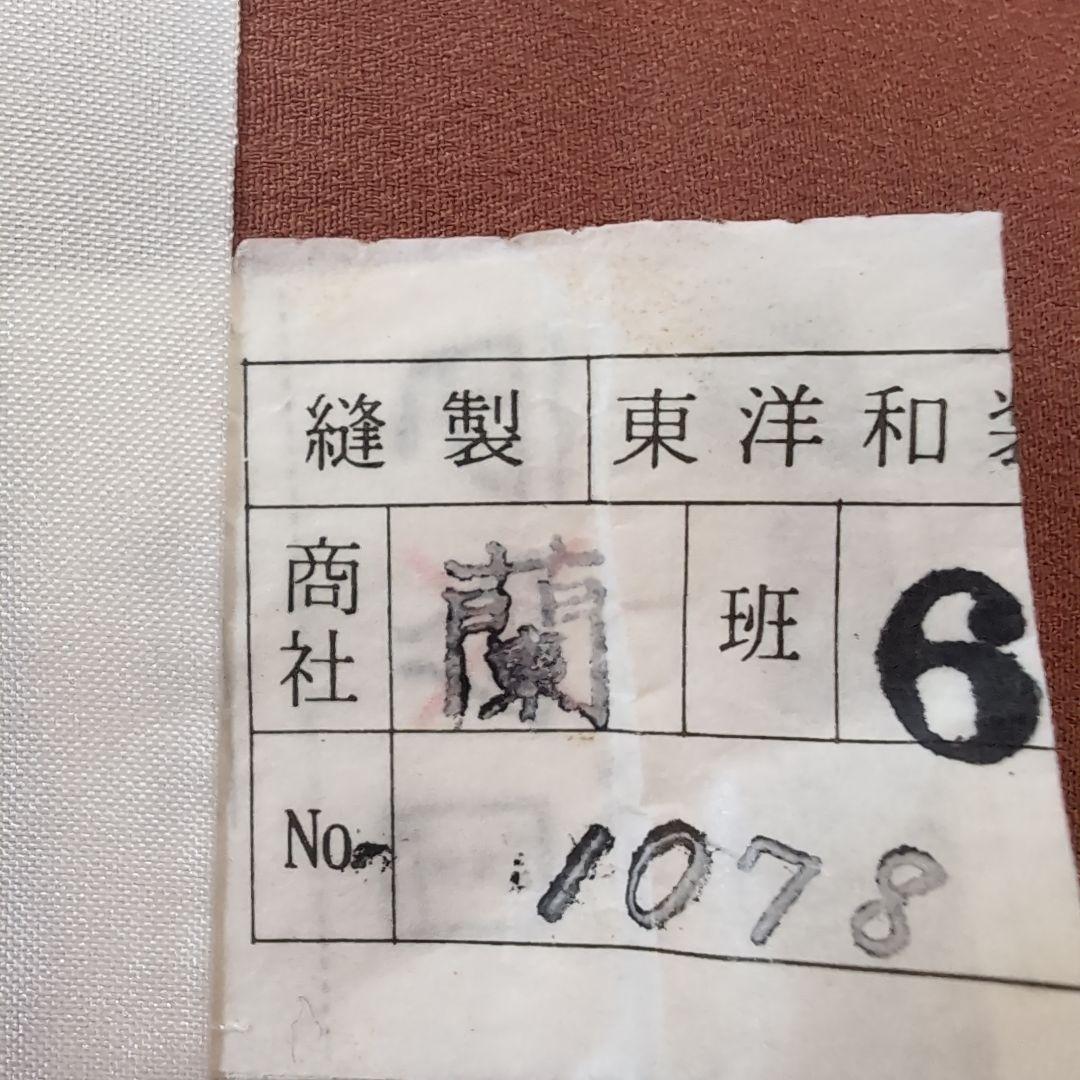 縫製 東洋和
商社 蘭 班 6
No. 1078